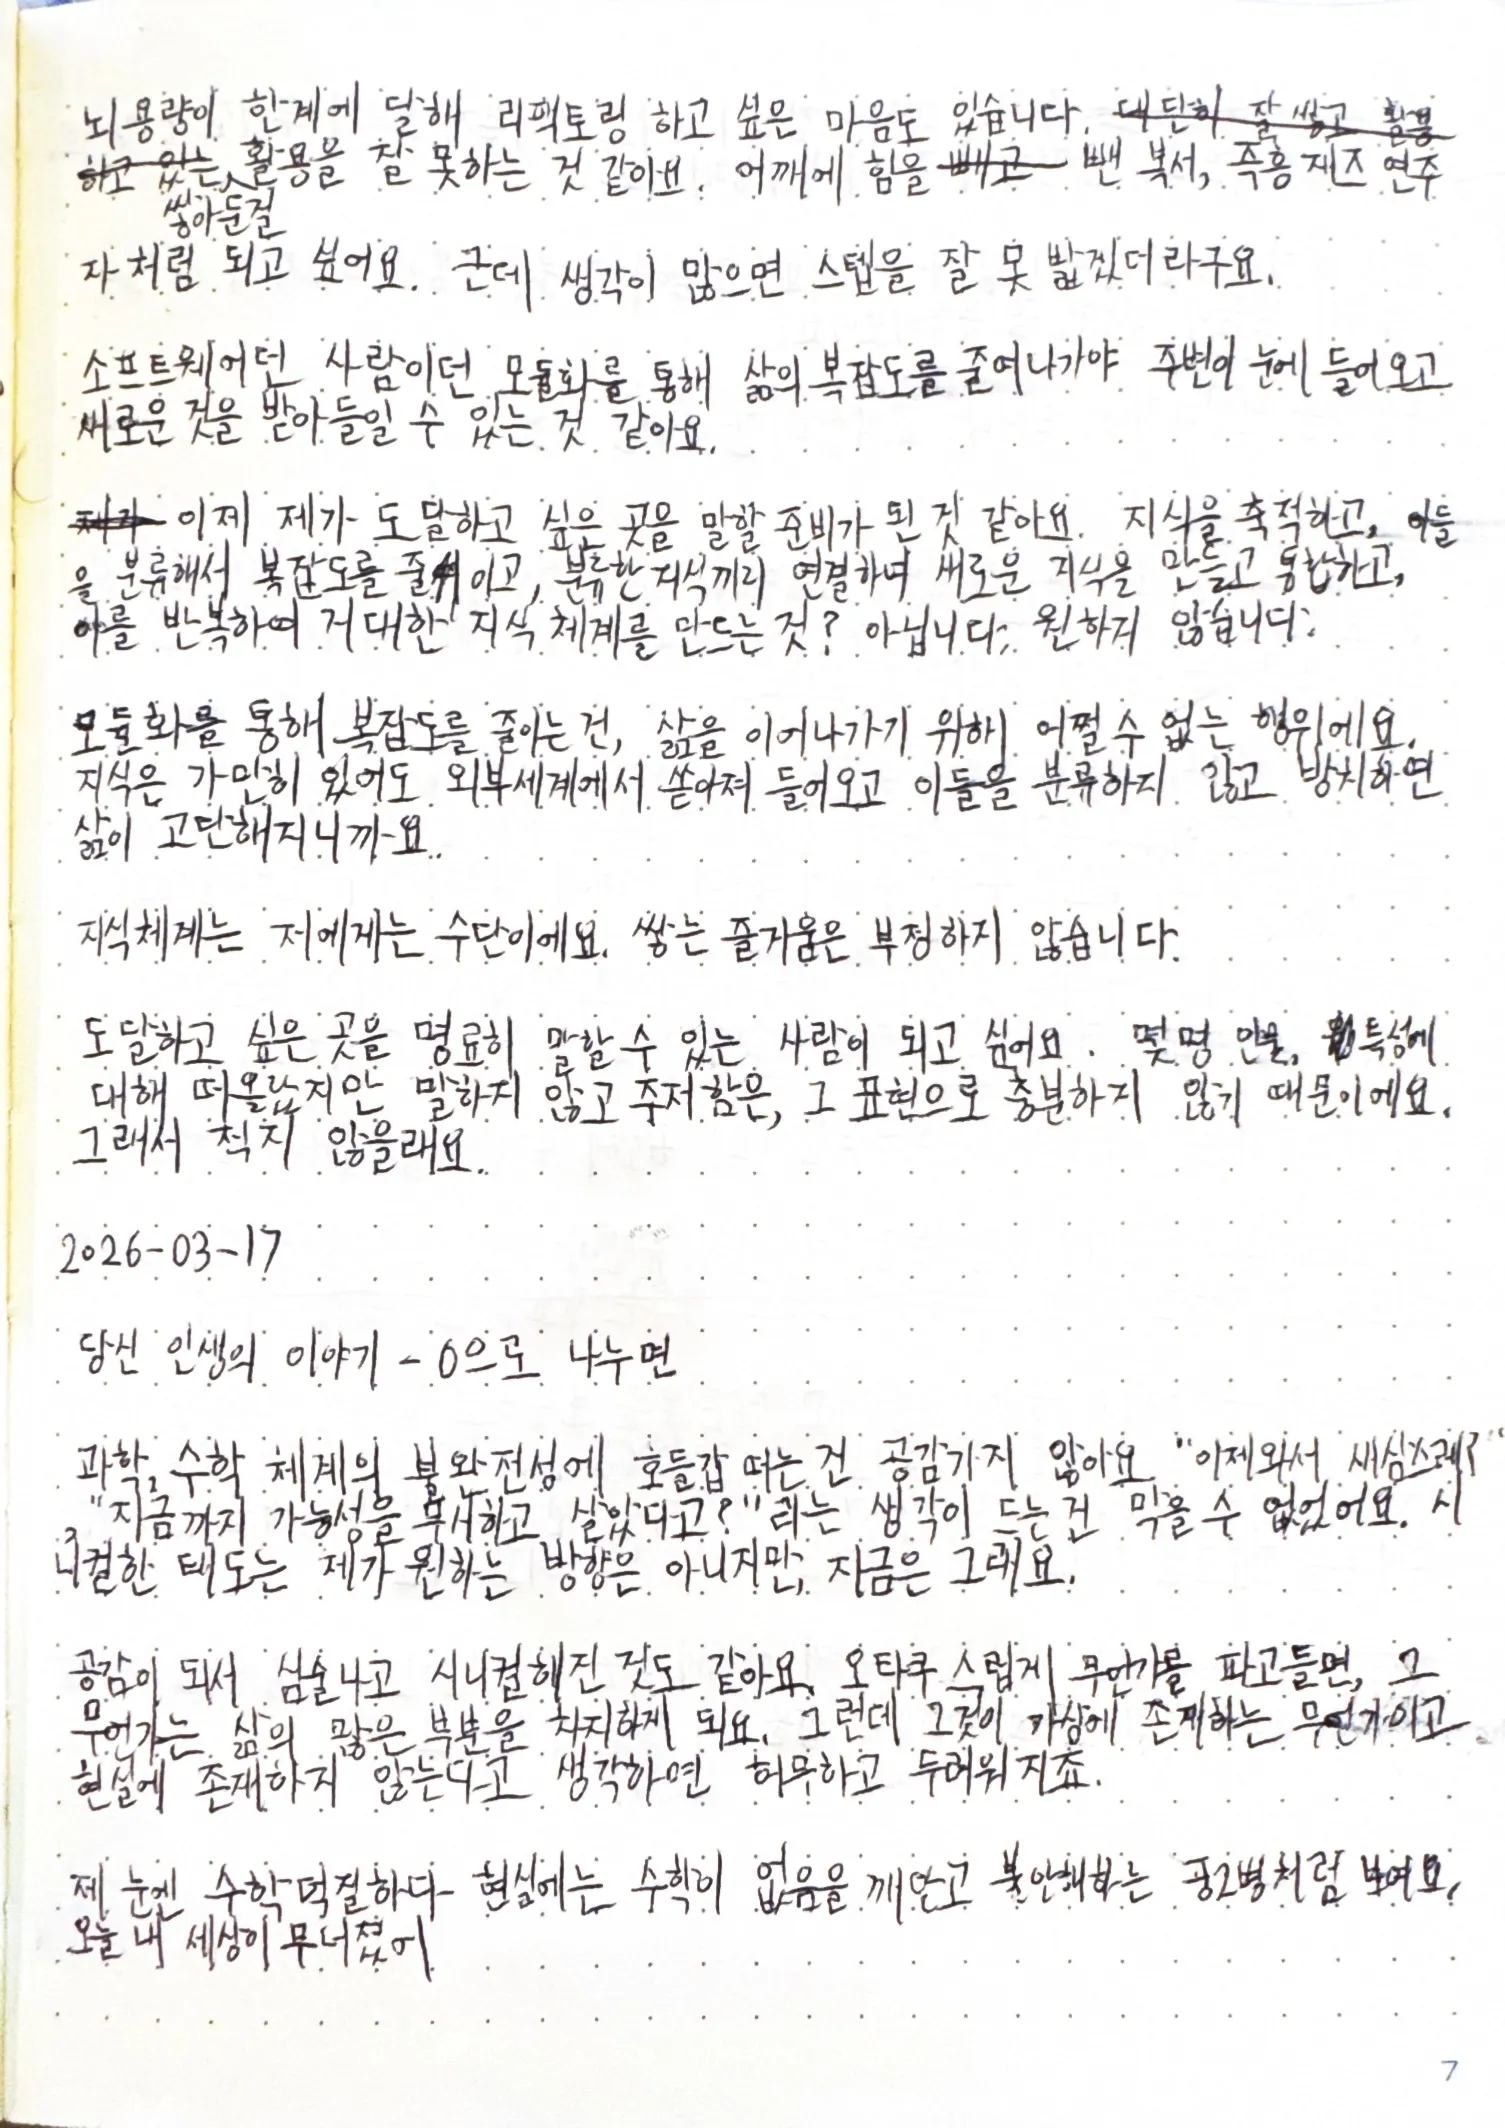 뇌용량이 한계에 달해 리팩토링 하고 싶은 마음도 있습니다. 대단히 잘 쌓고 활용
하고 있는 활용을 잘 못하는 것 같아요. 어깨에 힘을 빼고 뺀 복서, 즉흥 재즈 연주
쌓아둔걸
자처럼 되고 싶어요. 근데 생각이 많으면 스텝을 잘 못 밟겠더라구요.
소프트웨어던 사람이던 모듈화를 통해 삶의 복잡도를 줄여나가야 주변이 눈에 들어오고
새로운 것을 받아들일 수 있는 것 같아요.
이제 제가 도달하고 싶은 곳을 말할 준비가 된 것 같아요. 지식을 축적하고, 이들
을 분류해서 복잡도를 줄이고, 분류한 지식끼리 연결하며 새로운 지식을 만들고 통합하고,
이를 반복하여 거대한 지식 체계를 만드는 것? 아닙니다. 원하지 않습니다.
모듈화를 통해 복잡도를 줄이는 건, 삶을 이어나가기 위해 어쩔 수 없는 행위에요.
지식은 가만히 있어도 외부세계에서 쏟아져 들어오고 이들을 분류하지 않고 방치하면
삶이 고단해지니까요.
지식체계는 저에게는 수단이에요. 쌓는 즐거움은 부정하지 않습니다.
도달하고 싶은 곳을 명료히 말할 수 있는 사람이 되고 싶어요. 몇명 인물, 특성에
대해 떠올랐지만 말하지 않고 주저함은, 그 표현으로 충분하지 않기 때문이에요.
그래서 적지 않을래요.
2026-03-17
당신 인생의 이야기 - 0으로 나누면
과학, 수학 체계의 불완전성에 호들갑 떠는 건 공감가지 않아요 "이제와서 새삼스레?"
"지금까지 가능성을 무시하고 살았다고?" 라는 생각이 드는 건 막을 수 없었어요. 시
니컬한 태도는 제가 원하는 방향은 아니지만, 지금은 그래요.
공감이 되서 심술나고 시니컬해진 것도 같아요. 오타쿠 스럽게 무언가를 파고들면, 그
무언가는 삶의 많은 부분을 차지하게 되요. 그런데 그것이 가상에 존재하는 무언가이고
현실에 존재하지 않는다고 생각하면 허무하고 두려워지죠.
제 눈엔 수학덕질하다 현실에는 수학이 없음을 깨닫고 불안해하는 중2병처럼 보여요.
오늘 내 세상이 무너졌어
7